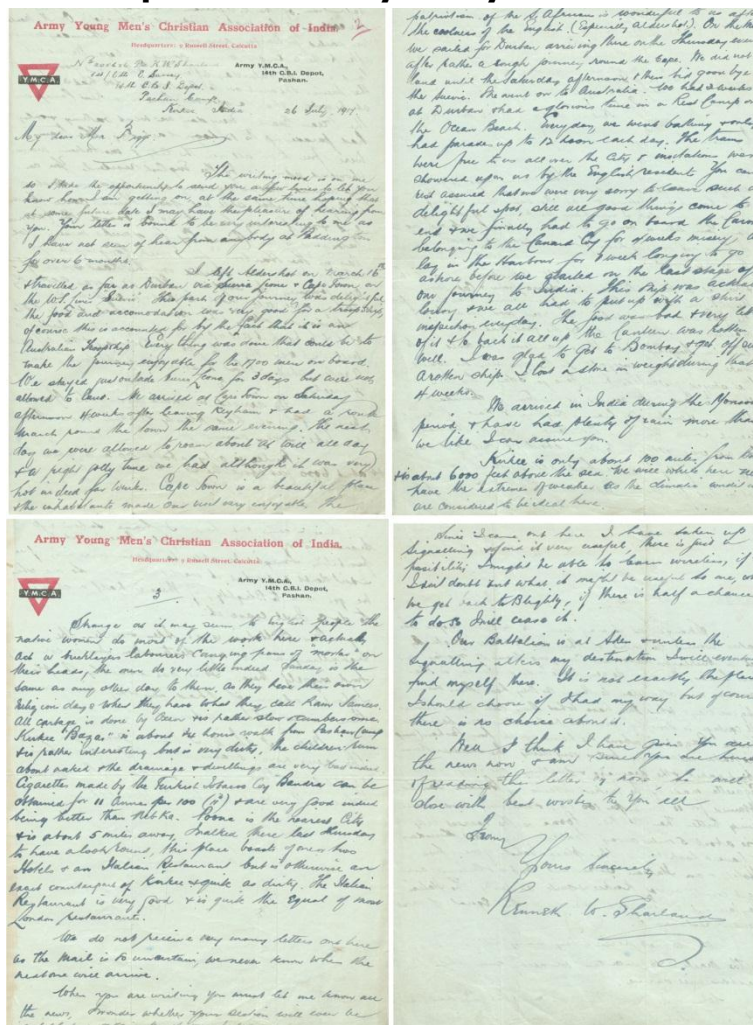 Army Young Men's Christian Association of India.
Headquarters: 2 Russell Street, Calcutta
Army Y.M.C.A.,
14th G.B.I. Depot,
Pashan.
Y.M.C.A.
Kirkee India 26 July 1917
My dear
The writing mood is on me
so I take the opportunity to send you a few lines to let you
know how I am getting on, at the same time hoping that
at some future date I may have the pleasure of hearing from
you. Your letter is bound to be very interesting to me as
I have not seen or hear from anybody at Paddington
for over 6 months.
I left Aldershot on March 16th
& travelled as far as Durban via Sierra Leone & Cape Town on
This part of our journey was delightful
the food and accomodation was very good for a troopship,
of course this is accounted for by the fact that it is an
Australian Troopship. Everything was done that could be to
make the journey enjoyable for the 1700 men on board.
We stayed just outside Sierra Leone for 3 days but were not
allowed to land. We arrived at Cape Town on Saturday
afternoon 4 weeks after leaving Keyham & had a route
march round the town the same evening. The next
day we were allowed to roam about at will all day
& a right jolly time we had although it was very
hot indeed for
Cape Town is a beautiful place
& the inhabitants made our visit very enjoyable. The
patriotism of the S. Africans is wonderful to us after
the coolness of the English. (Especially Aldershot). On the
we sailed for Durban arriving there on the Thursday
after rather a rough journey round the Cape. We did not
land until the Saturday afternoon & then bid good bye
We went on to Australia. We had 3 weeks
at Durban & had a glorious time in a Rest Camp
the Ocean Beach. Everyday we went bathing & only
had parade up to 12 noon each day. The trams
were free to us all over the City & invitations was
showered upon us by the English residents. You can
rest assured that we were very sorry to leave such
delightful spot, still all good things come to
end & we finally had to go on board the
belonging to the Cunard Coy for 4 weeks misery
lay in the Harbour for 1 week longing to go
ashore before we started on the last stage of
our journey to India. This ship was
lousy & we all had to put up with a shirt
inspection everyday. The food was bad & very little
of it & to back it all up the Canteen was rotten
well. I was glad to get to Bombay & get off
a rotten ship. I lost a stone in weight during that
4 weeks.
We arrived in India during the Monsoon
period & have had plenty of rain more than
we like I can assure you.
Kirkee is only about 100 miles from
& is about 6000 feet above the sea.
have the extremes of weather as the climatic
are considered to be ideal here.
Army Young Men's Christian Association of India.
Headquarters: 2 Russell Street, Calcutta
Army Y.M.C.A.,
14th G.B.I. Depot,
Pashan.
Y.M.C.A.
3
Strange as it may seem to English people the
native women do most of the work here & actually
act as bricklayers labourers carrying pans of mortar on
their heads, the men do very little indeed. Sunday is the
same as any other day to them, as they have their own
religious days when they have what they call Ram Sammies.
All cartage is done by Oxen & is rather slow & cumbersome.
Kirkee "Bazaar" is about 1½ hours walk from Pashan Camp
& is rather interesting but is very dirty, the children run
about naked & the drainage & dwellings are very bad indeed.
Cigarettes made by the Turkish Tobacco Coy Bandra can be
obtained for 11 Annas per 100 & are very good indeed
being better than Poona is the nearest City
& is about 5 miles away. I walked there last Thursday
to have a look round, this place boasts of one or two
Hotels & an Italian Restaurant but is otherwise an
exact counterpart of Kirkee & quite as dirty. The Italian
Restaurant is very good & is quite the equal of most
London restaurants.
We do not receive very many letters out here
as the mail is so uncertain, we never know when the
next one will arrive.
When you are writing you must let me know all
the news, I wonder whether your
will ever be
Since I came out here I have taken up
Signalling & find it very useful, there is just a
posibility I might be able to learn wireless, if
I don't doubt but what it might be useful to me,
we get back to Blighty, if there is half a chance
to do so I will
Our Battalion is at Aden & unless the
signalling alters my destination I will
find myself there. It is not exactly the place
I should choose if I had my way but of course
there is no choice about it.
Well I think I have given you all
the news now & am sure you are tired
of reading this letter by now, so will
close with best wishes to you all
From
Yours Sincerely
Kenneth W. Sharland